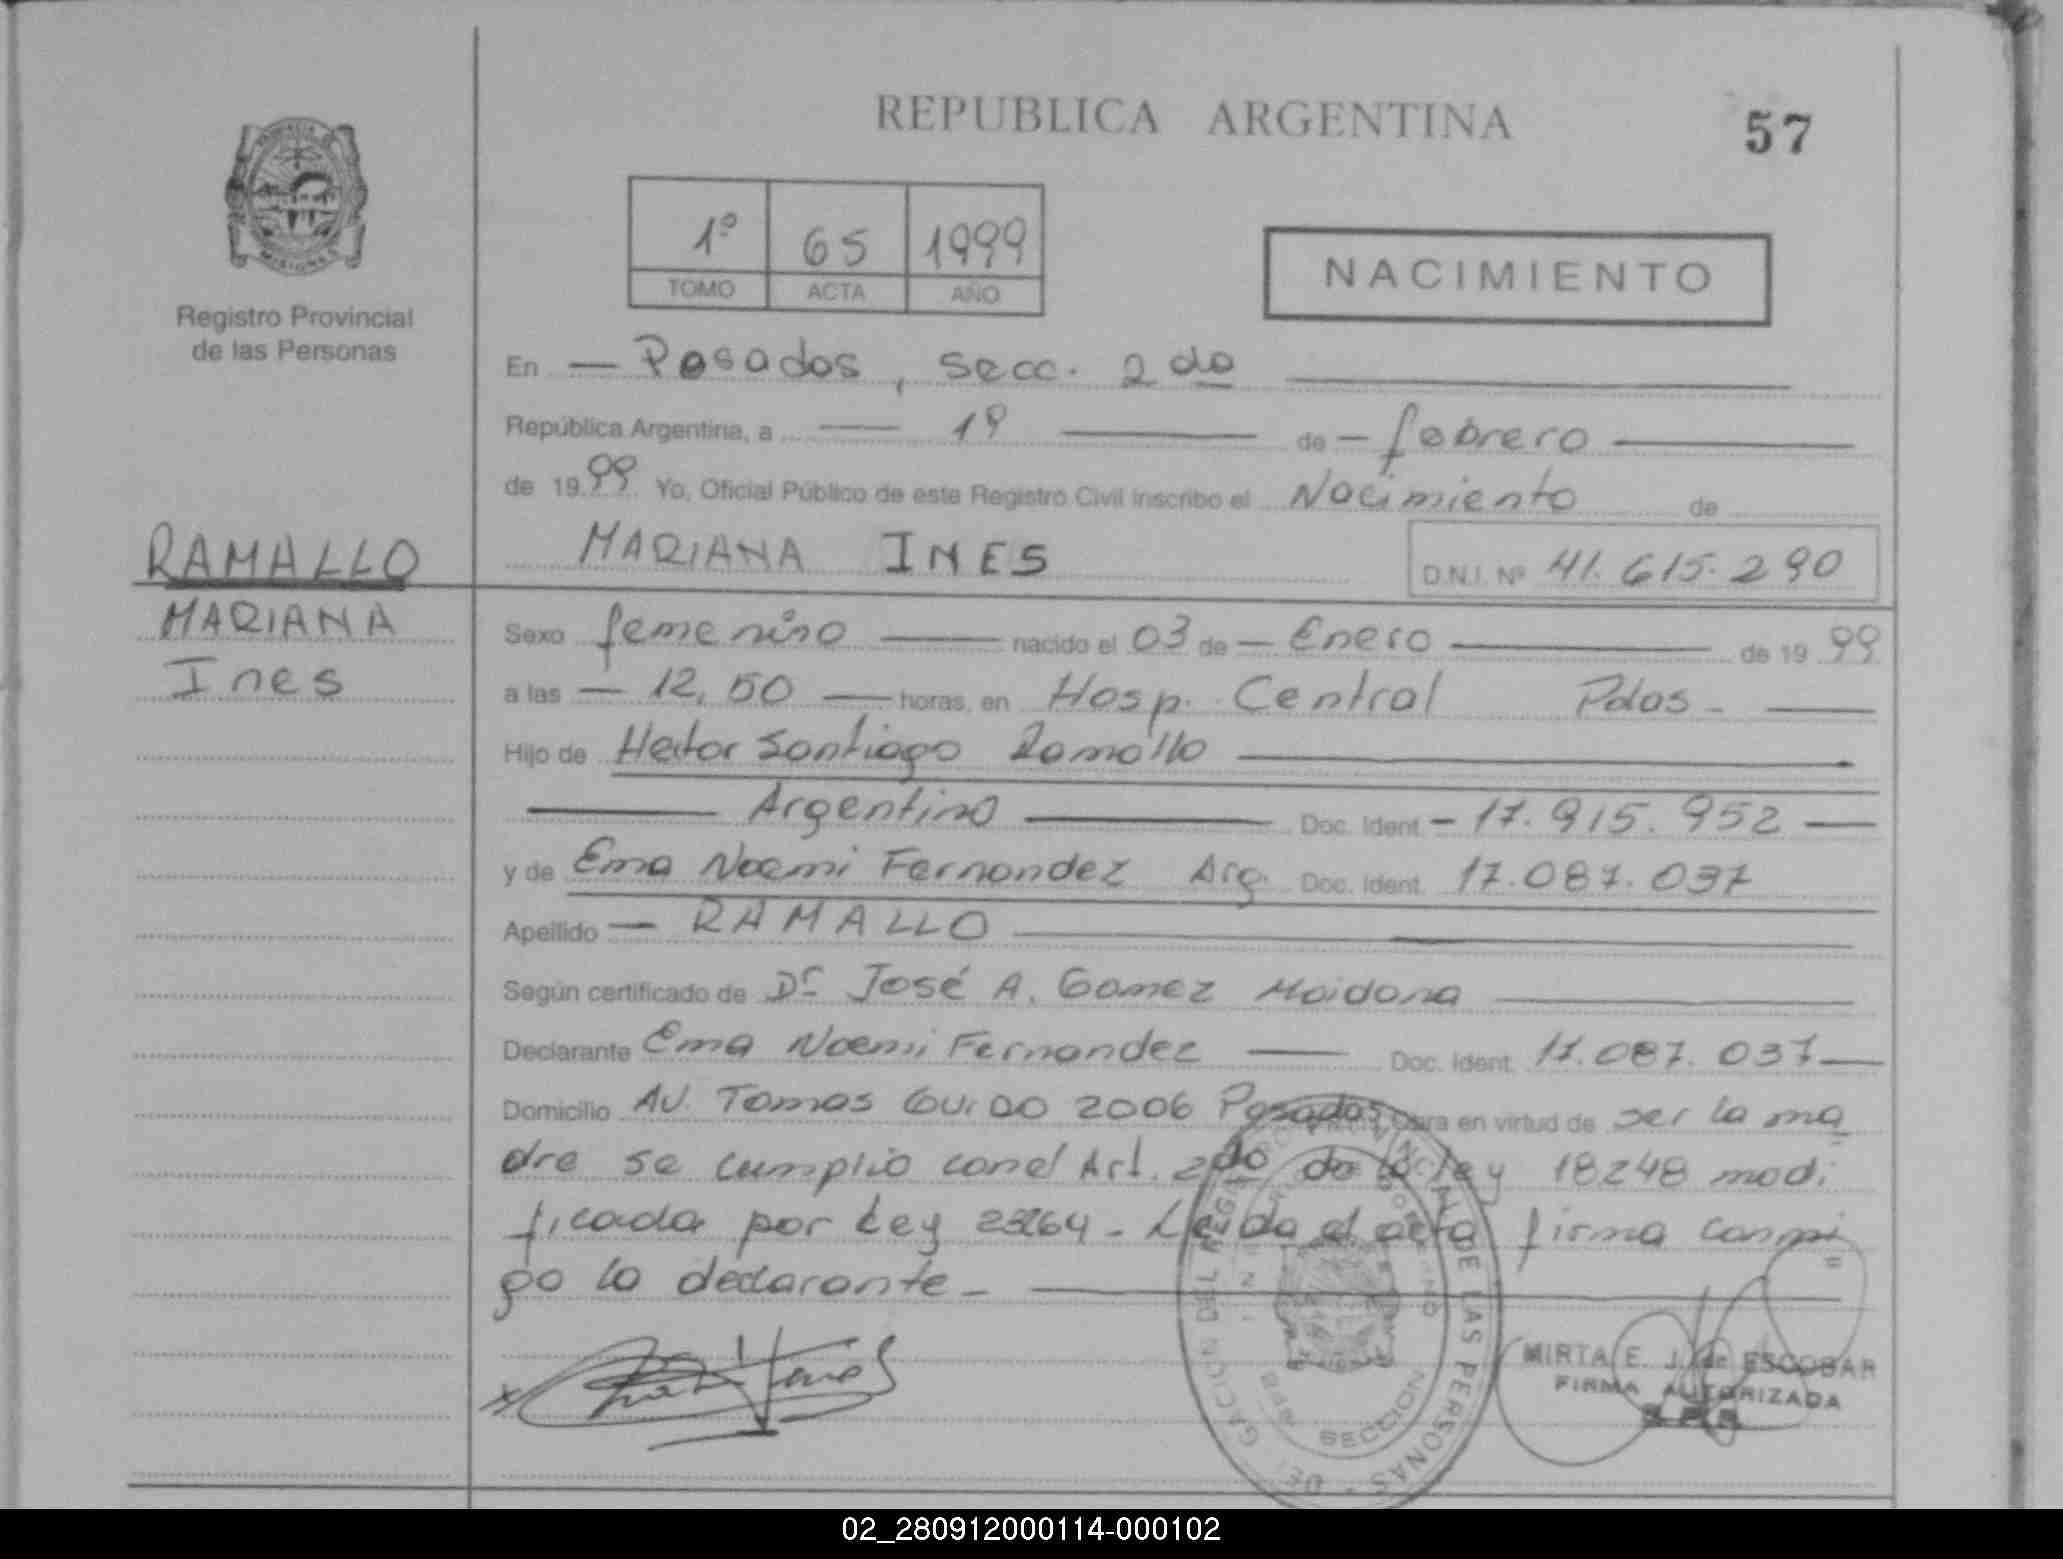 REPUBLICA ARGENTINA
57
1º 65 1999
TOMO ACTA AÑO
NACIMIENTO
MISIONES
Registro Provincial
de las Personas
En — Posadas, secc. 2da
República Argentina, a — 1º — de — febrero —
de 1999 Yo, Oficial Público de este Registro Civil inscribo el Nacimiento de
RAMALLO
MARIANA INES
D.N.I. Nº 41.615.290
MARIANA
Ines
Sexo femenino — nacido el 03 de — Enero — de 1999
a las — 12,50 — horas, en Hosp. Central Pdas. —
Hijo de Hector Santiago Ramallo —
— Argentino — Doc. Ident. — 17.915.952 —
y de Ema Noemi Fernandez Arg. Doc. Ident. 17.087.037
Apellido — RAMALLO —
Según certificado de Dr José A. Gomez Maidana —
Declarante Ema Noemi Fernandez — Doc. Ident. 17.087.037 —
Domicilio AV. Tomas Guido 2006 Posadas Obra en virtud de ser la ma
dre se cumplio con el Art. 2do de la ley 18248 modi
ficada por Ley 23264 - Leida el acta firma conmi
go la declarante -
MIRTA E. J. de ESCOBAR
FIRMA AUTORIZADA
DE LAS PERSONAS
SECCION
02_280912000114-000102